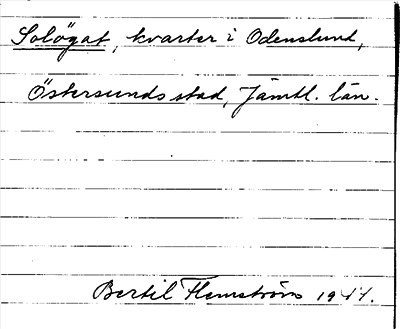 Solögat, kvarter i Odenslund,
Östersunds stad, Jämtl. län.
Bertil Flemström 1941.